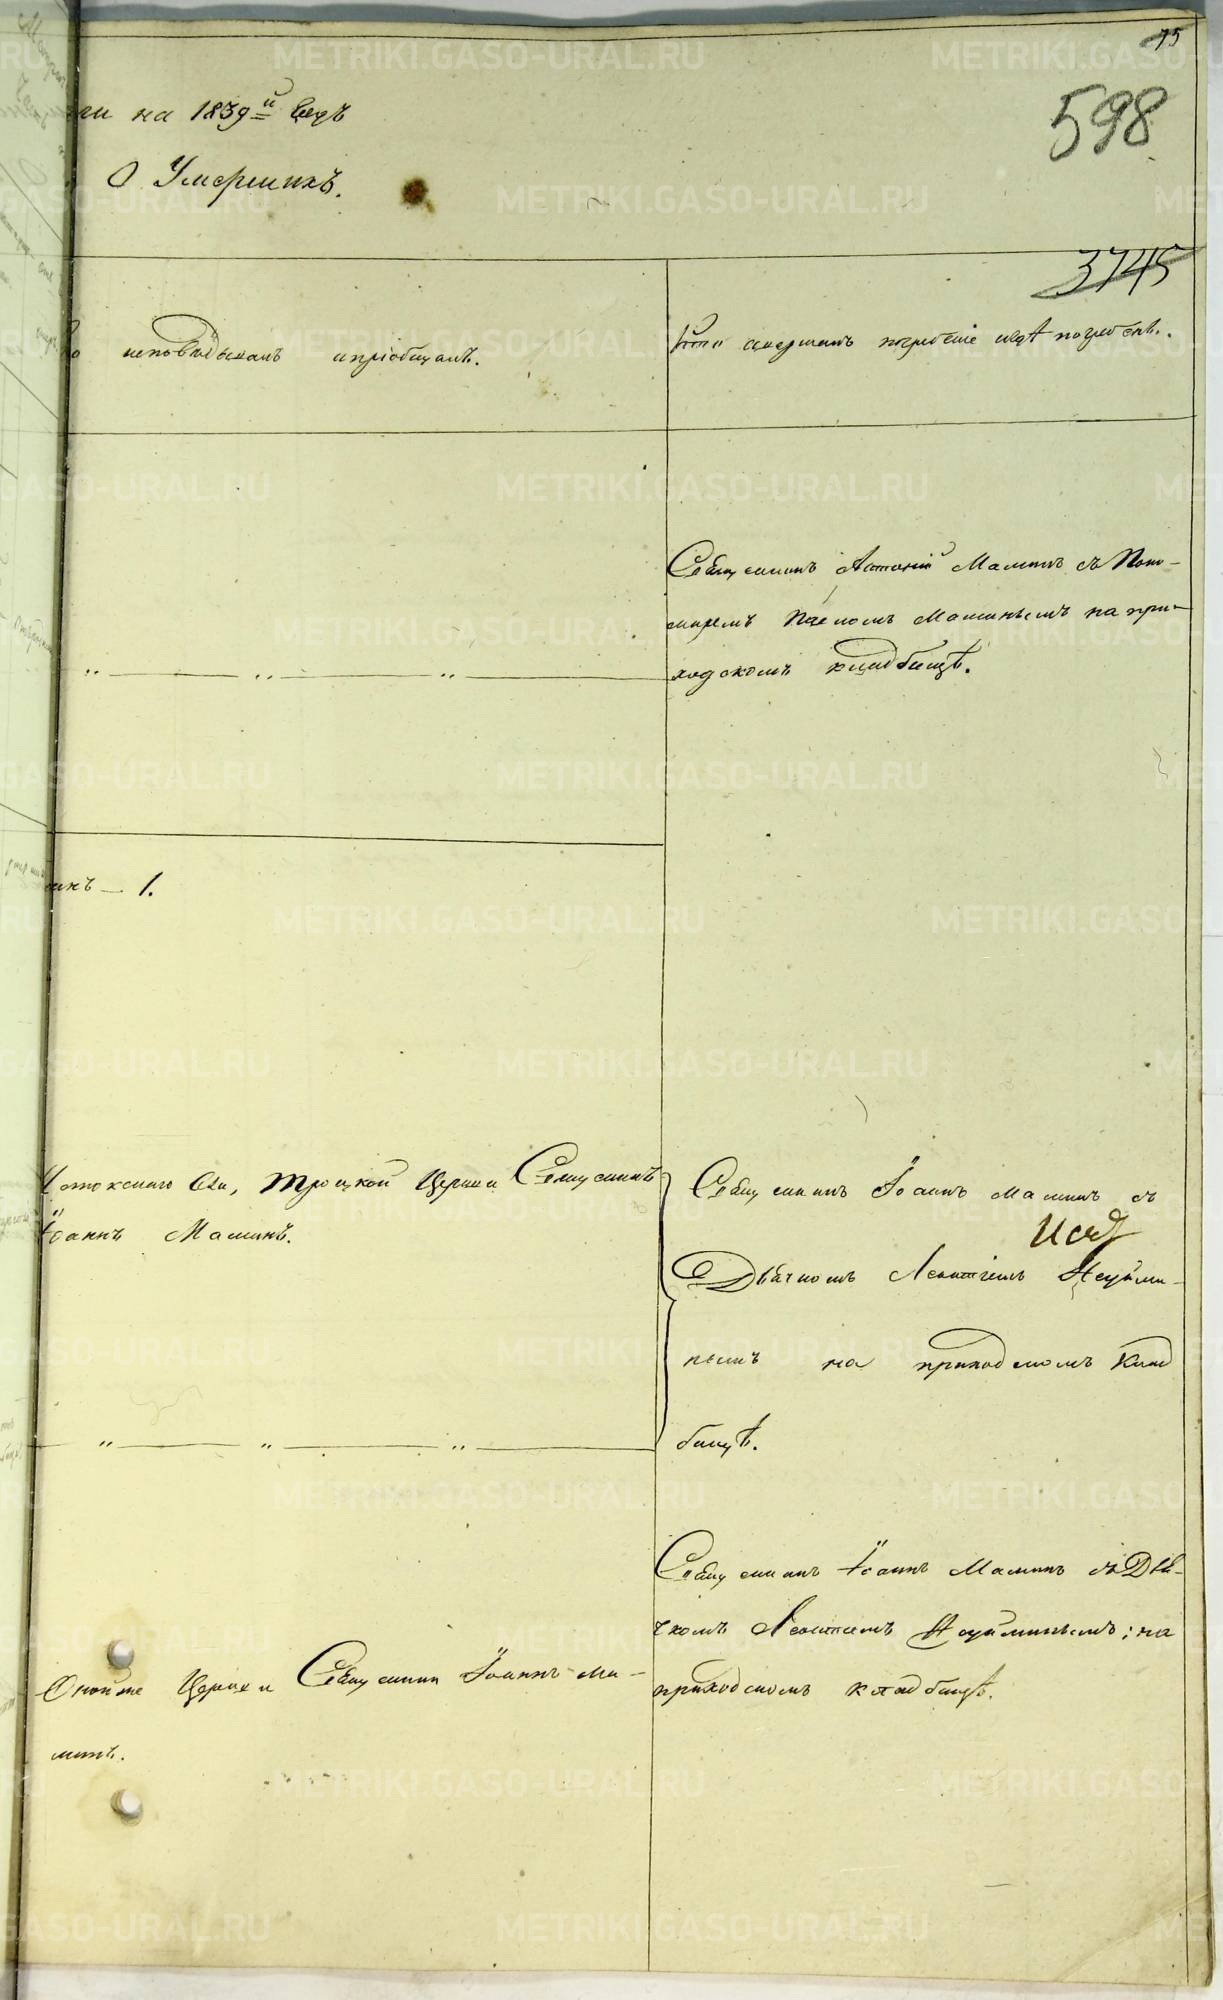 75
598
на 1839й годъ
О Умершихъ.
3745
исповѣдывалъ и пріобщалъ.
Кто совершалъ погребеніе и гдѣ погребены.
Священникъ Антоній Маминъ съ Поно-
маремъ Маминымъ на при-
ходскомъ кладбищѣ.
1.
Троицкой Церкви Священникъ
Іоаннъ Маминъ.
Священникъ Іоаннъ Маминъ съ
Дьячкомъ Леонтіемъ Неуйми-
нымъ на приходскомъ Клад
бищѣ.
Священникъ Іоаннъ Маминъ съ Дья-
чкомъ Леонтіемъ Неуйминымъ; на
приходскомъ кладбищѣ.
Оной же Церкви Священникъ Іоаннъ Ма-
минъ.
METRIKI.GASO-URAL.RU